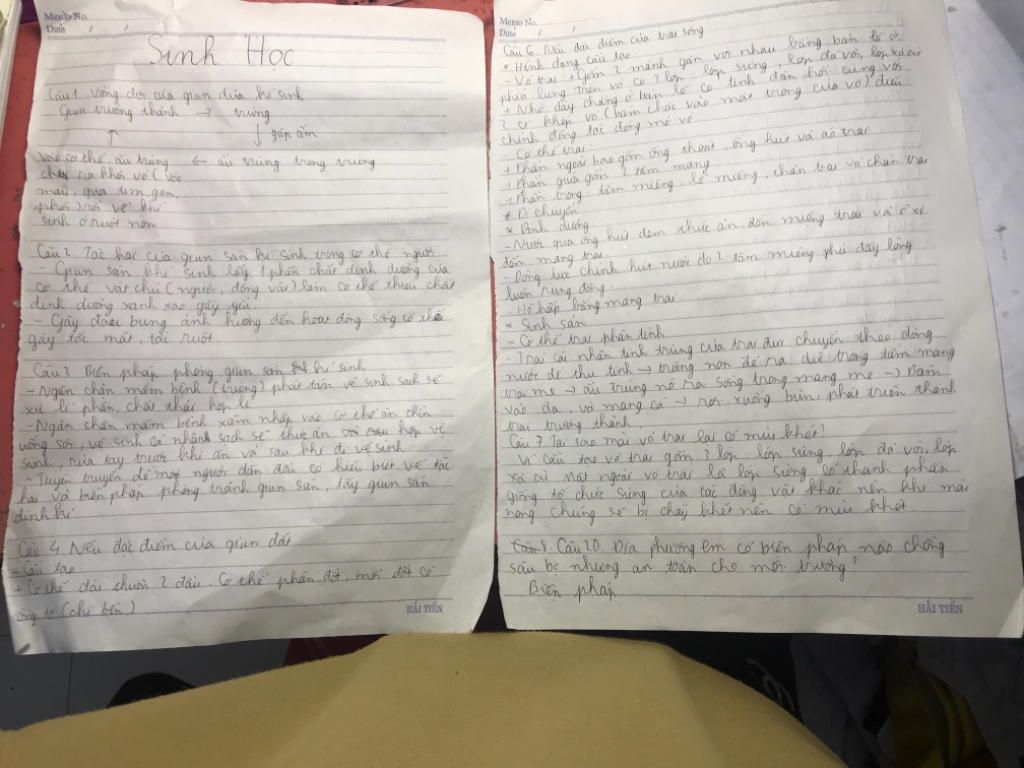 Memo No.
Date / /
Sinh Học
Câu 1 Vòng đời của giun đũa kí sinh
Giun trưởng thành → trứng
↑ ↓ gặp ẩm
vào cơ thể ấu trùng ← ấu trùng trong trứng
chui ra khỏi vỏ (vào
máu, qua tim gan,
phổi) rồi về kí
sinh ở ruột non
Câu 2. Tác hại của giun sán kí sinh trong cơ thể người
- Giun sán kí sinh lấy 1 phần chất dinh dưỡng của
cơ thể vật chủ (người, động vật) làm cơ thể thiếu chất
dinh dưỡng xanh xao gầy yếu
- Gây đau bụng ảnh hưởng đến hoạt động sống có thể
gây tắc mật, tắc ruột.
Câu 3 Biện pháp phòng giun sán kí sinh
- Ngăn chặn mầm bệnh (trứng) phát tán vệ sinh sạch sẽ
xử lí phân, chất thải hợp lí
- Ngăn chặn mầm bệnh xâm nhập vào cơ thể ăn chín
uống sôi, vệ sinh cá nhân sạch sẽ thức ăn hợp vệ
sinh, rửa tay trước khi ăn và sau khi đi vệ sinh
- Tuyên truyền để mọi người dân đều có hiểu biết về tác
hại và biện pháp phòng tránh giun sán, tẩy giun sán
định kì.
Câu 4 Nêu đặc điểm của giun đất
- Cấu tạo:
+ Cơ thể dài thuôn 2 đầu. Cơ thể phân đốt, mỗi đốt có
vòng tơ (chi bên)
HẢI TIẾN
Memo No.
Date / /
Câu 6. Nêu đặc điểm của trai sông
* Hình dạng cấu tạo
- Vỏ trai: + Gồm 2 mảnh gắn với nhau bằng bản lề ở
phía lưng trên vỏ có 3 lớp: lớp sừng, lớp đá vôi, lớp xà cừ
+ Nhờ dây chằng ở bản lề có tính đàn hồi cùng với
2 cơ khép vỏ (bám chắc vào mặt trong của vỏ) điều
chỉnh động tác đóng mở vỏ
- Cơ thể trai:
+ Phần ngoài bao gồm ống thoát, ống hút và áo trai
+ Phần giữa gồm 2 tấm mang
+ Phần trong: tấm miệng, lỗ miệng, thân trai và chân trai
* Di chuyển
* Dinh dưỡng
- Nước qua ống hút đem thức ăn đến miệng trai và ôxi
đến mang trai
- Động lực chính hút nước do 2 tấm miệng phủ đầy lông
luôn rung động
. Hô hấp bằng mang trai
* Sinh sản
- Cơ thể trai phân tính
- Trai cái nhận tinh trùng của trai đực chuyển theo dòng
nước để thụ tinh → trứng non đẻ ra giữ trong tấm mang
trai mẹ → ấu trùng nở ra sống trong mang mẹ → Bám
vào da, và mang cá → rơi xuống bùn, phát triển thành
trai trưởng thành.
Câu 7. Tại sao mài vỏ trai lại có mùi khét?
Vì cấu tạo vỏ trai gồm 3 lớp: lớp sừng, lớp đá vôi, lớp
xà cừ Mặt ngoài vỏ trai là lớp sừng có thành phần
giống tổ chức sừng của các động vật khác nên khi mài
nóng chúng sẽ bị cháy khét nên có mùi khét.
Câu 8. Câu 20. Địa phương em có biện pháp nào chống
sâu bọ nhưng an toàn cho môi trường?
Biện pháp
HẢI TIẾN